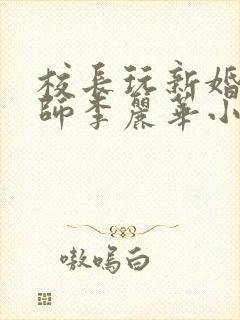 校長玩新婚
師李麗華小
嗷嗚白